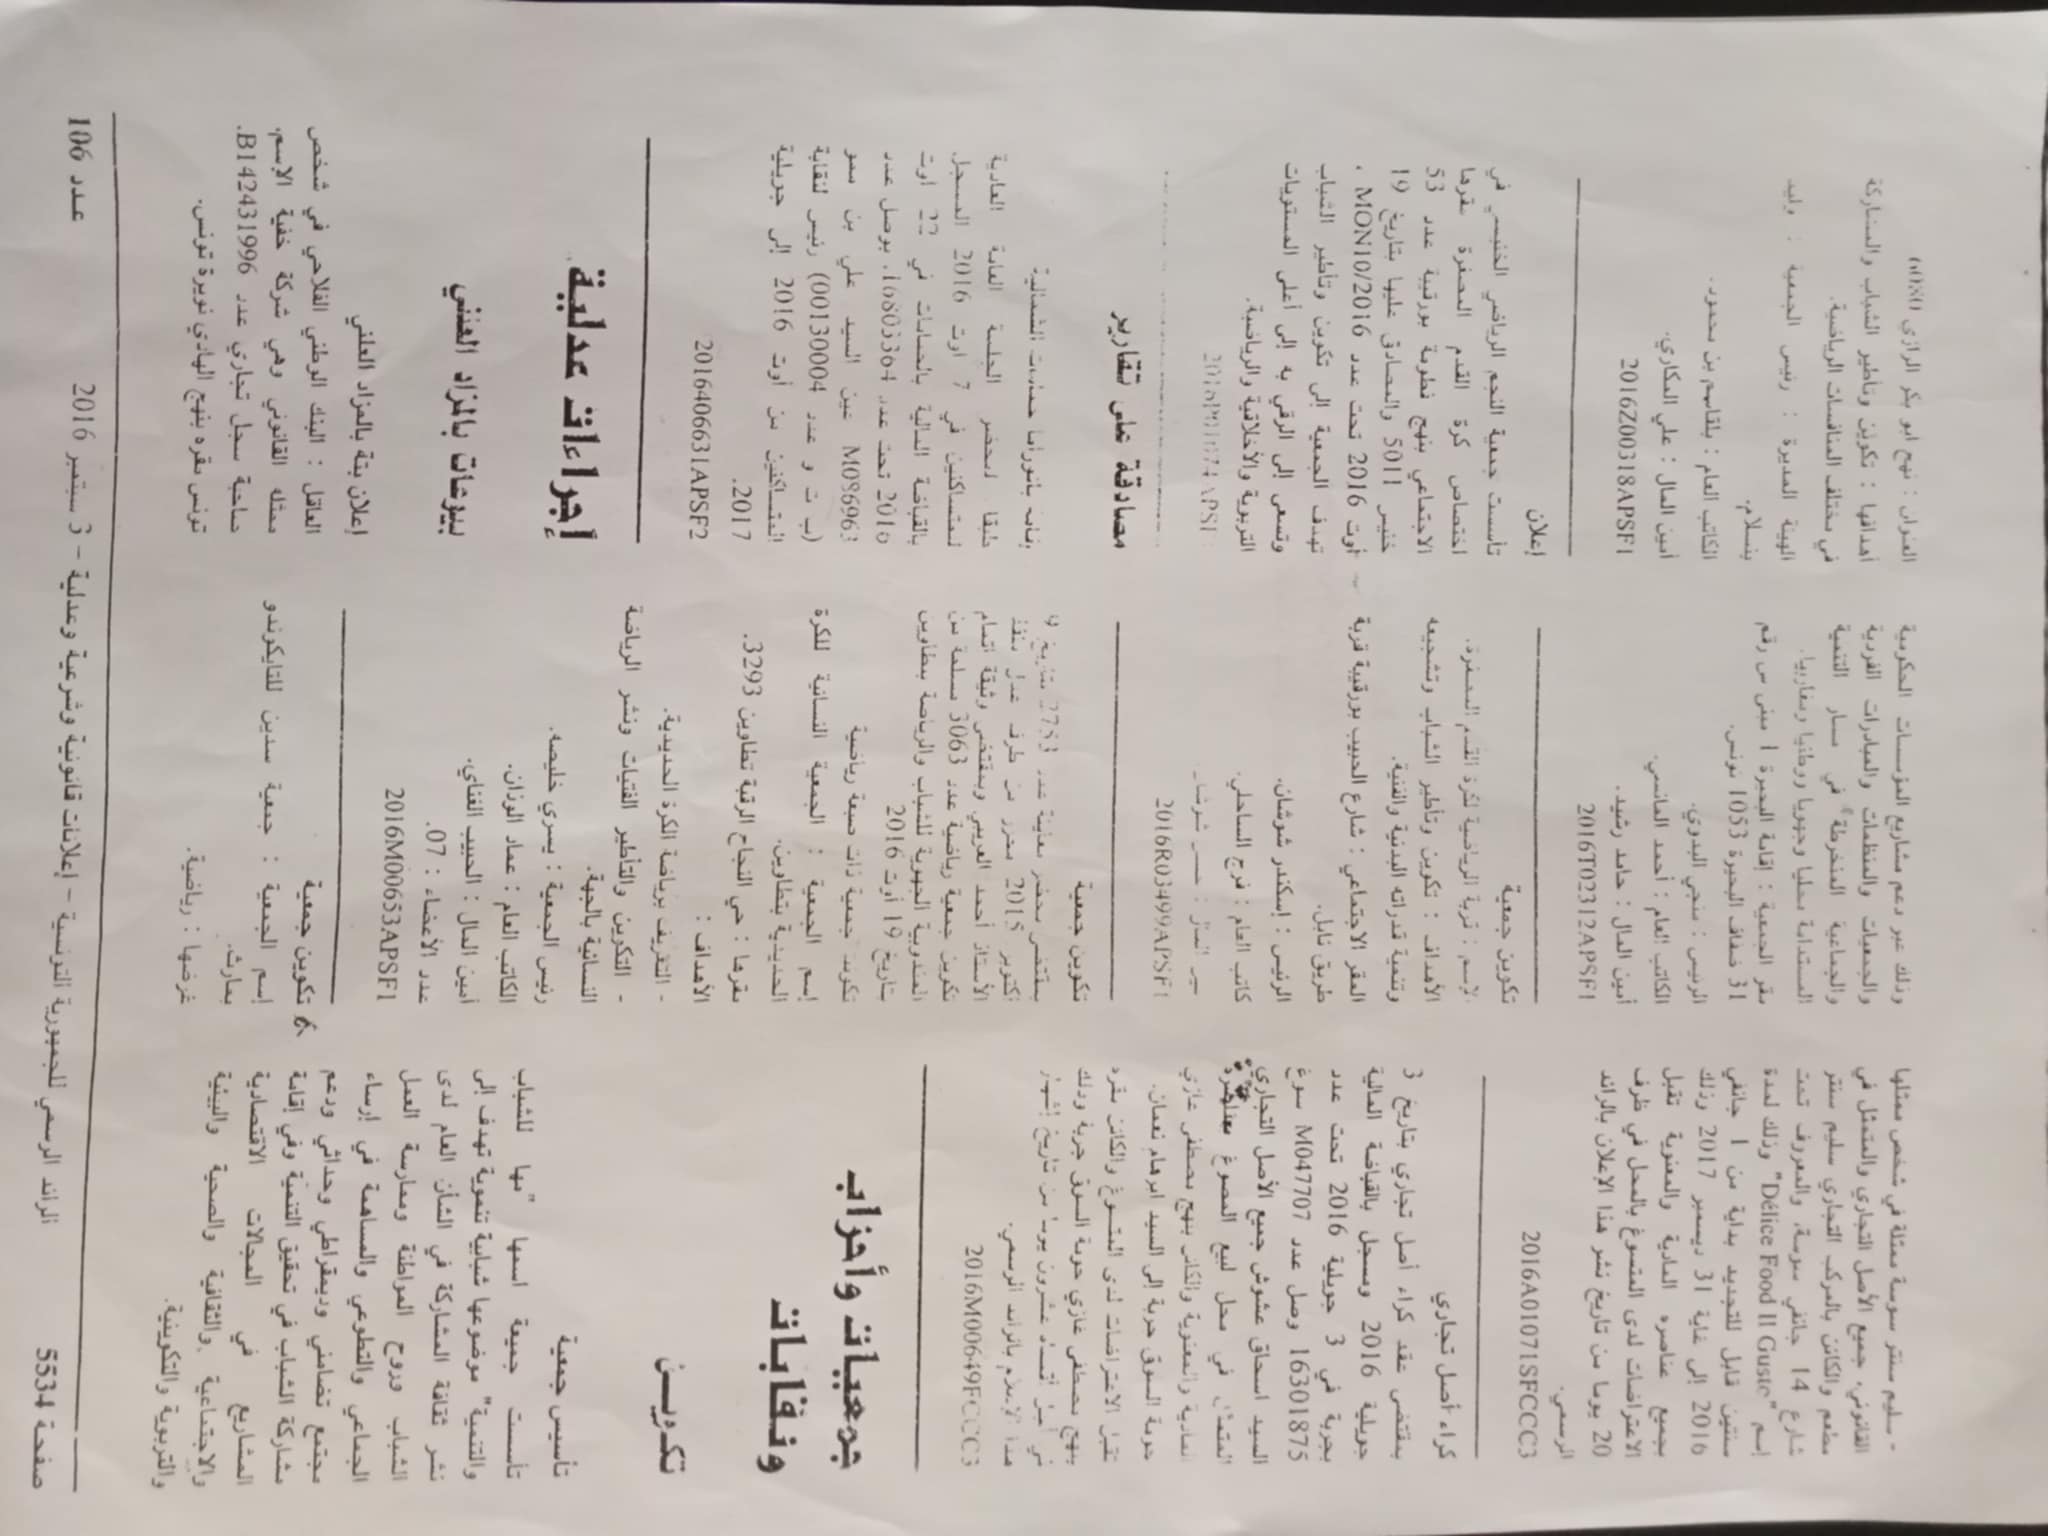 - سليم سنتر سوسة ممثلة في شخص ممثلها
القانوني، جميع الأصل التجاري والمتمثل في
مطعم والكائن بالمركب التجاري سليم سنتر
شارع 14 جانفي سوسة، والمعروف تحت
إسم "Délice Food Il Gusto" وذلك لمدة
سنتين قابل للتجديد بداية من 1 جانفي
2016 إلى غاية 31 ديسمبر 2017 وذلك
بجميع عناصره المادية والمعنوية تقبل
الاعتراضات لدى المتسوغ بالمحل في ظرف
20 يوما من تاريخ نشر هذا الإعلان بالرائد
الرسمي.
2016A01071SFCCC3
كراء أصل تجاري
بمقتضى عقد كراء أصل تجاري بتاريخ 3
جويلية 2016 وسجل بالقباضة المالية
بجربة في 3 جويلية 2016 تحت عدد
16301875 وصل عدد M047707 سوغ
السيد اسحاق عشوش جميع الأصل التجاري
المتمثل في محل لبيع المصوغ
المادية والمعنوية والكائن بنهج مصطفى غازي
حومة السوق جربة إلى السيد ابرهام نعمان.
تقبل الاعتراضات لدى المتسوغ والكائن مقره
بنهج مصطفى غازي حومة السوق جربة وذلك
في أجل أقصاه عشرون يوما من تاريخ إشهار
هذا الإعلام بالرائد الرسمي.
2016M00649FCCC3
جمعيات وأحزاب
ونقابات
تكويــن
تأسيس جمعية
تأسست جمعية اسمها "مها للشباب
والتنمية" موضوعها شبابية تنموية تهدف إلى
نشر ثقافة المشاركة في الشأن العام لدى
الشباب وروح المواطنة وممارسة العمل
الجماعي والتطوعي والمساهمة في إرساء
مجتمع تضامني وديمقراطي وحداثي ودعم
مشاركة الشباب في تحقيق التنمية وفي إقامة
المشاريع في المجالات الاقتصادية
والاجتماعية والثقافية والصحية والبيئية
والتربوية والتكوينية.
وذلك عبر دعم مشاريع المؤسسات الحكومية
والجمعيات والمنظمات والمبادرات الفردية
والجماعية المنخرطة في مسار التنمية
المستدامة محليا وجهويا ووطنيا ومغاربيا.
مقر الجمعية : إقامة البحيرة 1 مبنى س رقم
31 ضفاف البحيرة 1053 تونس.
الرئيس : منجي البدوي.
الكاتب العام : أحمد المانسي.
أمين المال : حامد رشيد.
2016T02312APSF1
تكوين جمعية
الإسم : قربة الرياضية لكرة القدم المصغرة.
الأهداف : تكوين وتأطير الشباب وتشجيعه
وتنمية قدراته البدنية والفنية.
المقر الاجتماعي : شارع الحبيب بورقيبة قربة
طريق نابل.
الرئيس : إسكندر شوشان.
كاتب العام : فرج الساحلي.
2016R03499APSF1
تكوين جمعية
بمقتضى محضر معاينة عدد 2753 بتاريخ 9
أكتوبر 2015 محرر من طرف عدل منفذ
الأستاذ أحمد العريبي وبمقتضى وثيقة اتمام
تكوين جمعية رياضية عدد 3063 مسلمة من
المندوبية الجهوية للشباب والرياضة بتطاوين
بتاريخ 19 أوت 2016
تكونت جمعية ذات صبغة رياضية
إسم الجمعية : الجمعية النسائية للكرة
الحديدية بتطاوين.
مقرها : حي النجاح الرقبة تطاوين 3293.
الأهداف :
- التعريف برياضة الكرة الحديدية.
- التكوين والتأطير الفتيات ونشر الرياضة
النسائية بالجهة.
رئيس الجمعية : يسرى خليصه.
الكاتب العام : عماد الوذان.
أمين المال : الحبيب القناي.
عدد الأعضاء : 07.
2016M00653APSF1
تكوين جمعية
إسم الجمعية : جمعية سدين للتايكوندو
بمارث.
غرضها : رياضية.
العنوان : نهج ابو بكر الرازي 6080
أهدافها : تكوين وتأطير الشباب والمشاركة
في مختلف المنافسات الرياضية.
الهيئة المديرة : رئيس الجمعية : وليد
بنسلام.
الكاتب العام : بلقاسم بن محمود.
أمين المال : علي المكاري.
2016Z00318APSF1
إعلان
تأسست جمعية النجم الرياضي الخنيسي في
اختصاص كرة القدم المصغرة مقرها
الاجتماعي بنهج قطومة بورقيبة عدد 53
خنيس 5011 والمصادق عليها بتاريخ 19
أوت 2016 تحت عدد MON10/2016 ،
تهدف الجمعية إلى تكوين وتأطير الشباب
وتسعى إلى الرقي به إلى أعلى المستويات
التربوية والأخلاقية والرياضية.
مصادقة على تقارير
طبقا لمحضر الجلسة العامة العادية
لمتساكنين في 7 أوت 2016 المسجل
بالقباضة المالية بالحمامات في 22 أوت
2016 تحت عدد 16803364، بوصل عدد
M086963 عين السيد علي بن سمو
(ب ت و عدد 00130004) رئيس لنقابة
المتساكنين من أوت 2016 إلى جويلية
2017.
2016406631APSF2
إجراءات عدلية
بيوعات بالمزاد العلني
إعلان بتة بالمزاد العلني
العاقل : البنك الوطني الفلاحي في شخص
ممثله القانوني وهي شركة خفية الإسم،
صاحبة سجل تجاري عدد B142431996.
تونس مقره بنهج الهادي نويرة تونس.
صفحة 5534
الرائد الرسمي للجمهورية التونسية – إعلانات قانونية وشرعية وعدلية – 3 سبتمبر 2016
عـدد 106